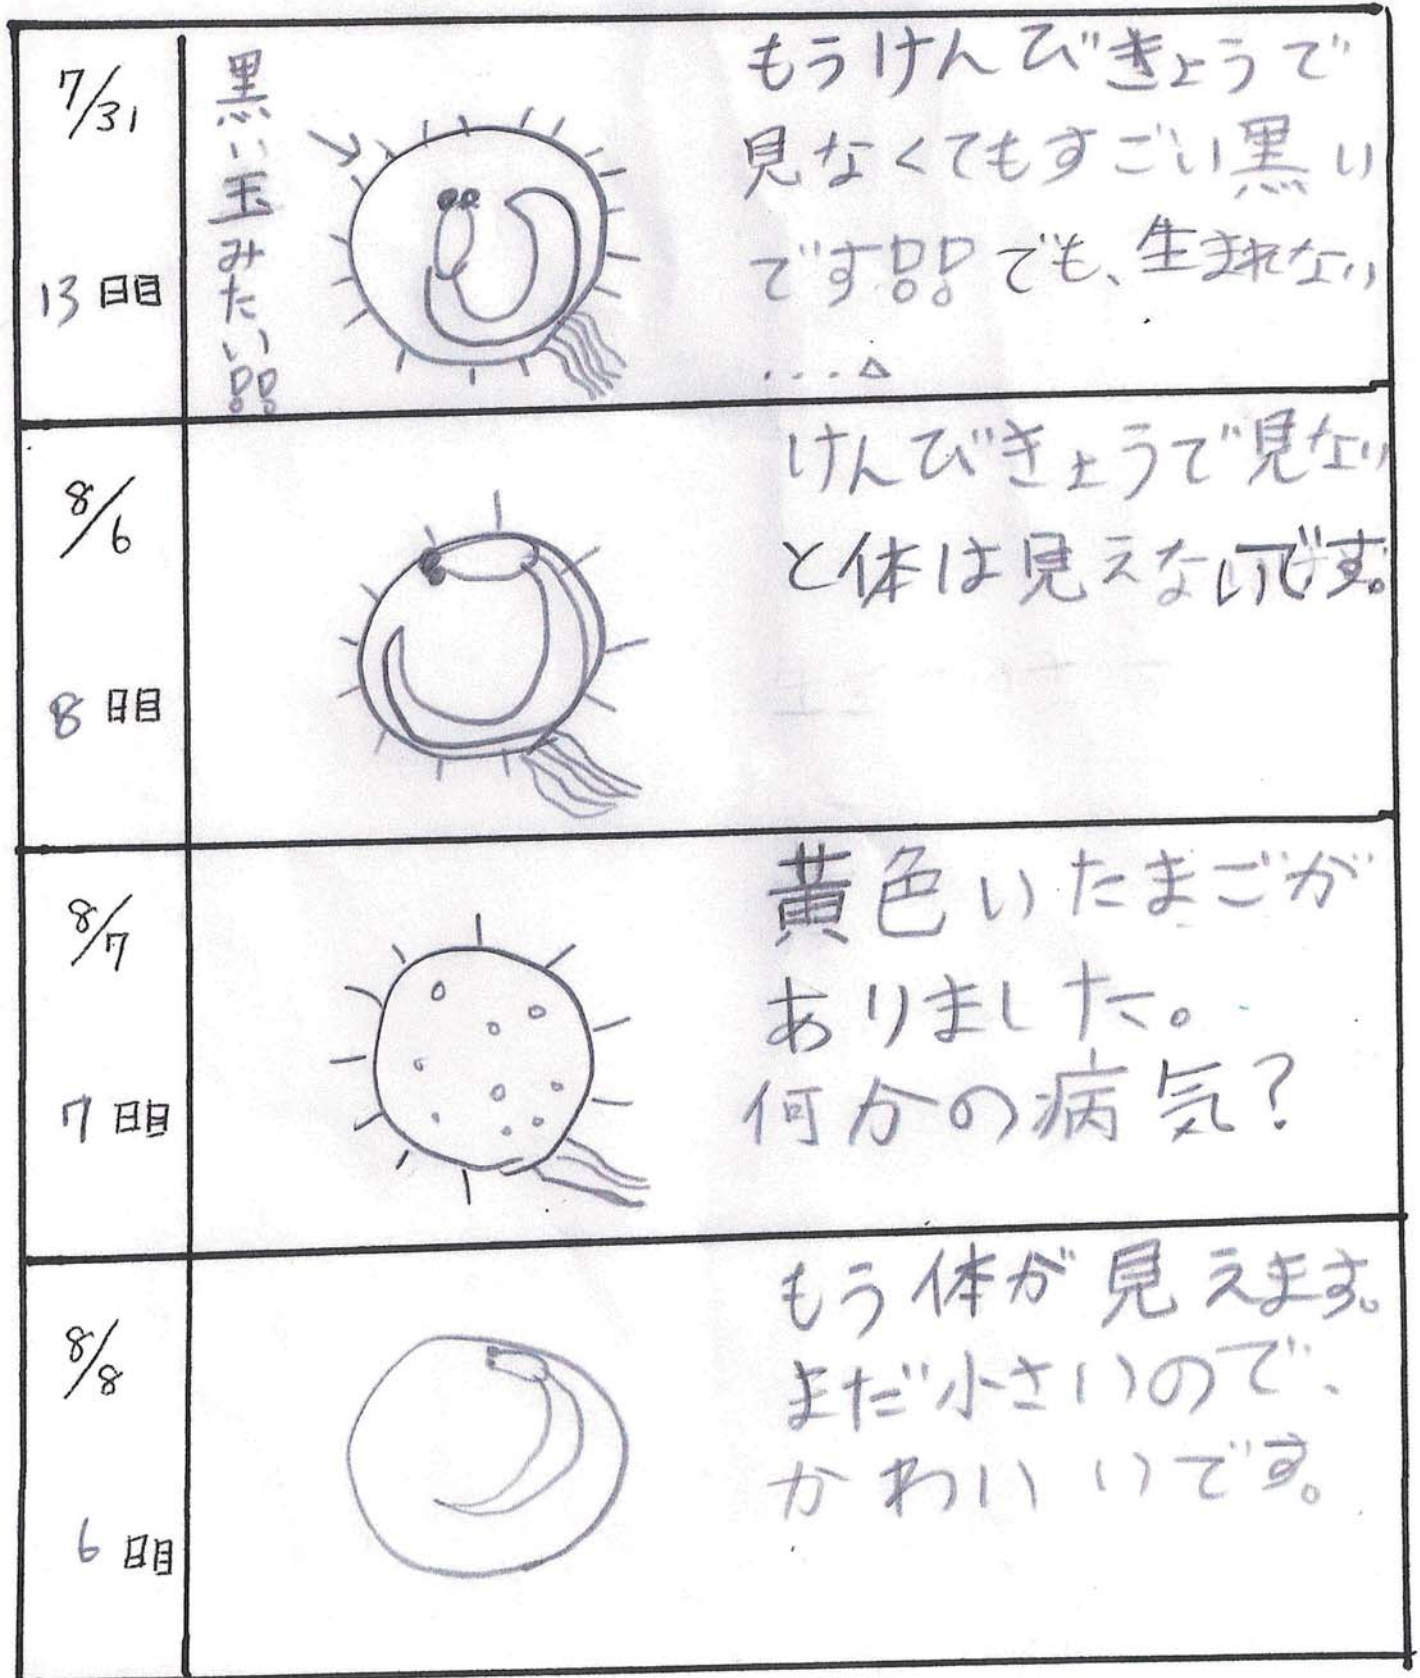 7/31
13日目
黒い玉みたい!!
もうけんびきょうで
見なくてもすごい黒い
です!!でも、生まれない
...△
8/6
8日目
けんびきょうで見ない
と体は見えないです。
8/7
7日目
黄色いたまごが
ありました。
何かの病気?
8/8
6日目
もう体が見えます。
まだ小さいので、
かわいいです。